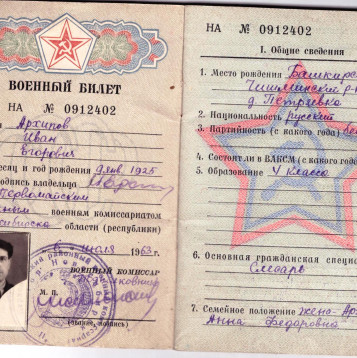 ВОЕННЫЙ БИЛЕТ
НА № 0912402
Архипов
Иван
Егорович
есяц и год рождения 9 янв. 1925
одпись владельца
Первомайским
ным военным комиссариатом
сибирска области (республики)
6 июля 1963 г.
ВОЕННЫЙ КОМИССАР
М. П.
(звание, подпись)
НА № 0912402
I. Общие сведения
1. Место рождения Башкирс
Чишминский р-н
д. Петряевка
2. Национальность русский
3. Партийность (с какого года) бе
4. Состоял ли в ВЛКСМ (с какого
5. Образование V класса
6. Основная гражданская специ
Слесарь
7. Семейное положение жена-Ар
Анна Федоровна